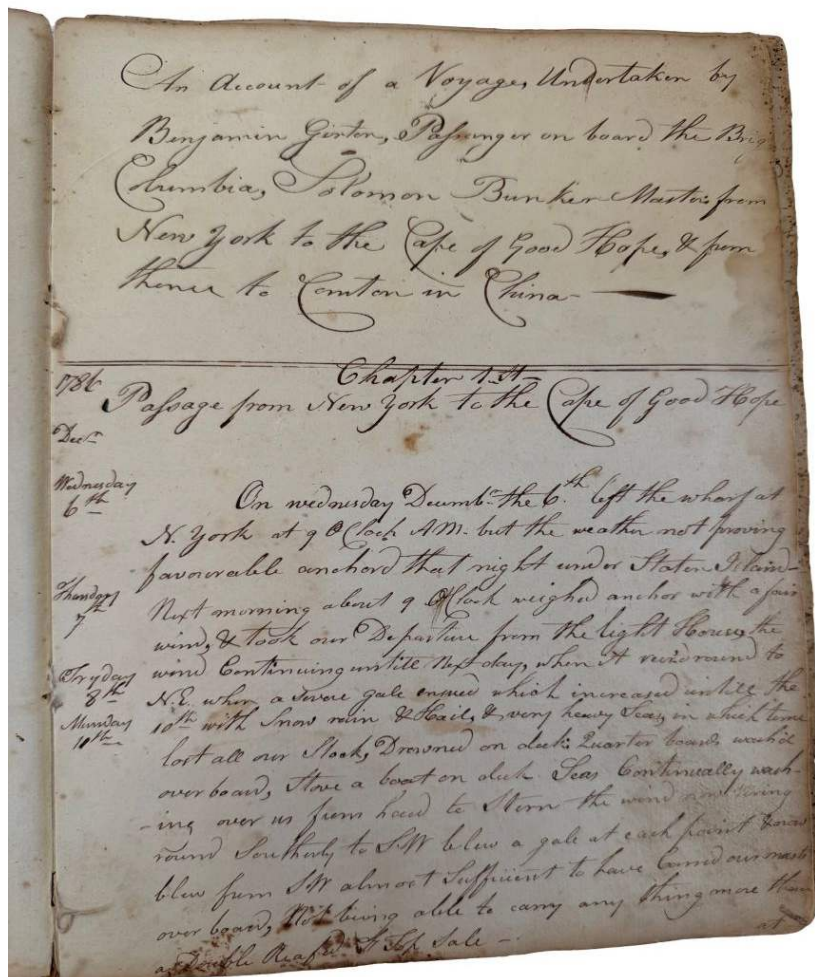 An Account of a Voyage, Undertaken by
Benjamin Girton, Passanger on board the Brig
Columbia, Solomon Bunker Master, from
New York to the Cape of Good Hope, & from
thence to Canton in China—
Chapter 1st
1786
Passage from New York to the Cape of Good Hope
Decr
Wednesday
6th
On wednesday Decembr the 6th left the wharf at
N. York at 9 OClock AM. but the weather not proving
favourable anchord that night under Staten Island—
Thursday
7th
Next morning about 9 OClock weighed anchor with a fair
wind, & took our Departure from the light House, the
wind Continuing untill Next day, when it veird round to
Fryday
8th
N.E. when a severe gale ensued which increased untill the
Munday
10th
10th with Snow rain & Hail, & very heavy Seas, in which time
lost all our Stock, Drowned on deck, Quarter boards wash'd
over board, Stove a boat on deck Seas Continually wash-
-ing over us from head to Stern the wind now
round Southerly to SW blew a gale at each point & now
blew from SW almost Sufficient to have Carried our masts
over board, Not being able to carry any thing more than
a Double Reafed Sale —
at